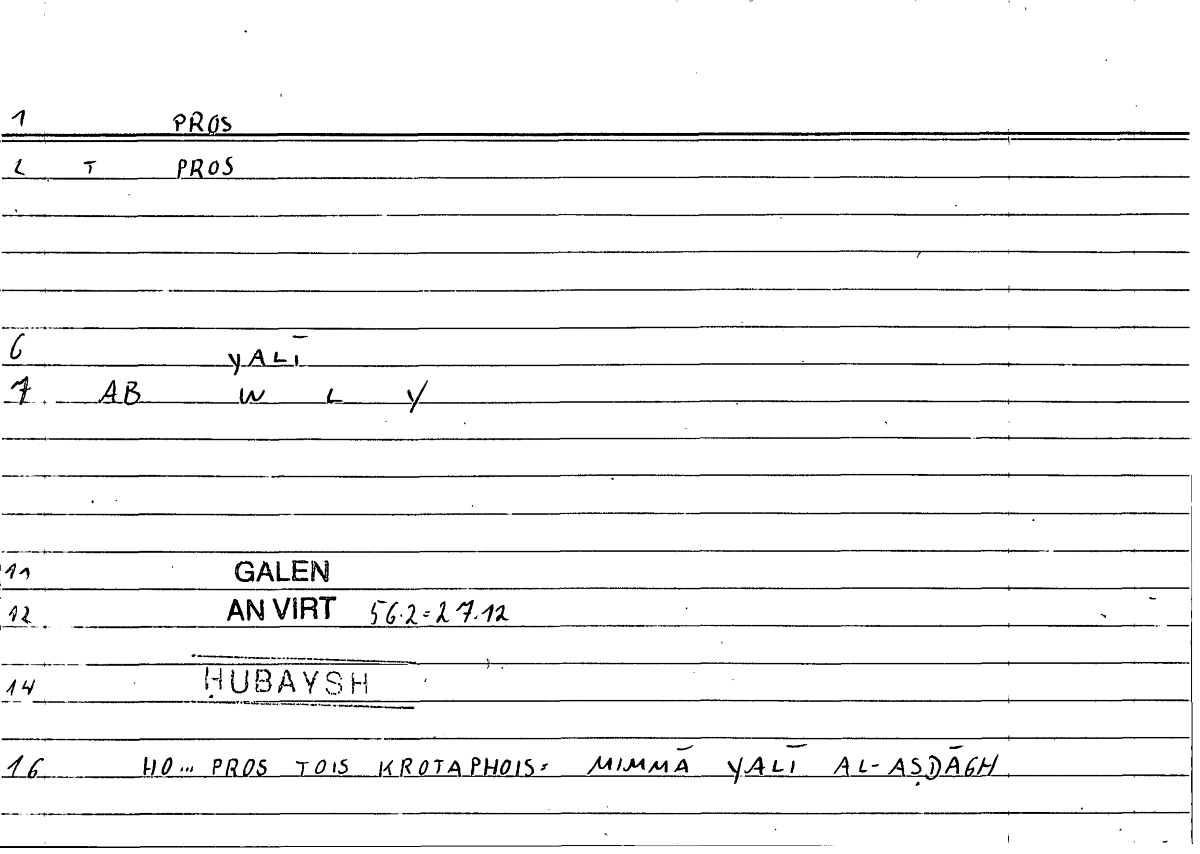 1 PROS
2 T PROS
6 YALĪ
7 AB W L Y
11 GALEN
12 AN VIRT 56.2=27.12
14 ḤUBAYSH
16 HO... PROS TOIS KROTAPHOIS= MIMMĀ YALĪ AL-AṢDĀGH